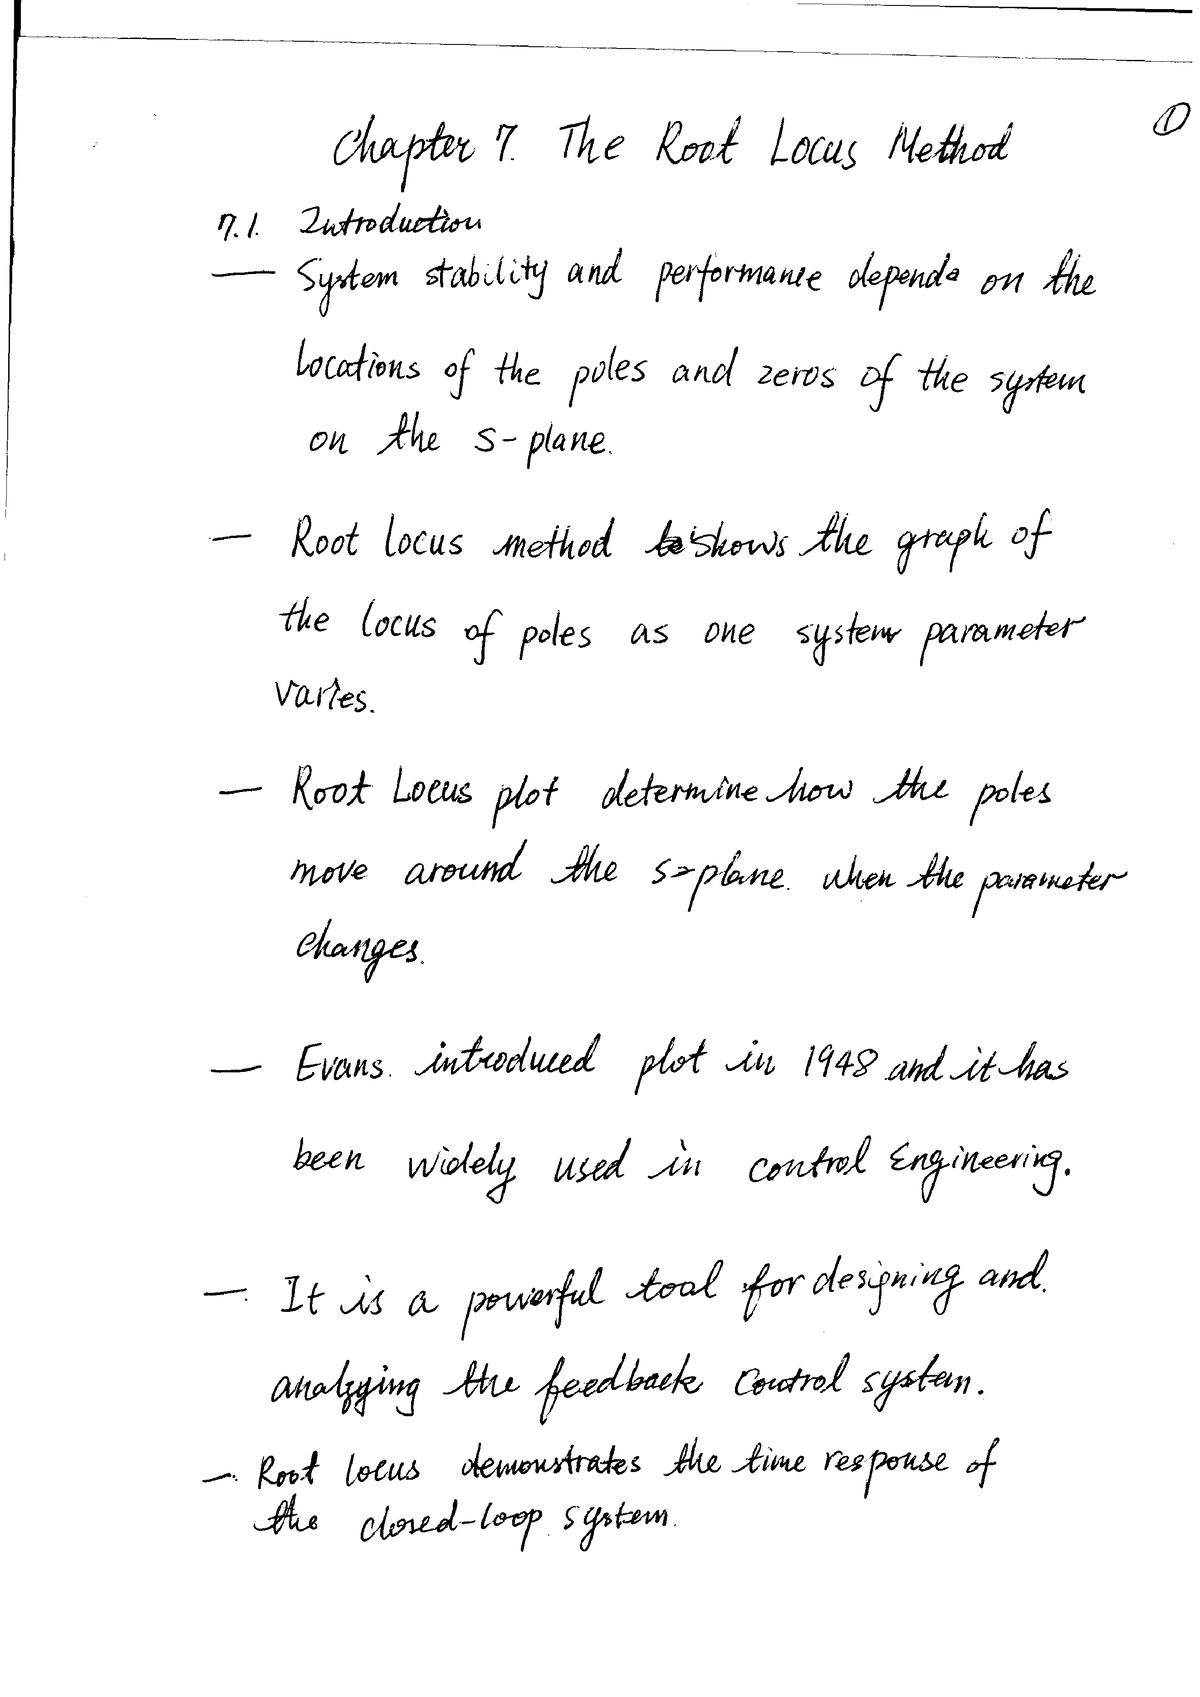 ①
Chapter 7. The Root Locus Method
7.1. Introduction
— System stability and performance depends on the
locations of the poles and zeros of the system
on the s-plane.
— Root locus method shows the graph of
the locus of poles as one system parameter
varies.
— Root Locus plot determine how the poles
move around the s-plane. when the parameter
changes.
— Evans. introduced plot in 1948 and it has
been widely used in control Engineering.
— It is a powerful tool for designing and.
analyzing the feedback control system.
— Root locus demonstrates the time response of
the closed-loop system.